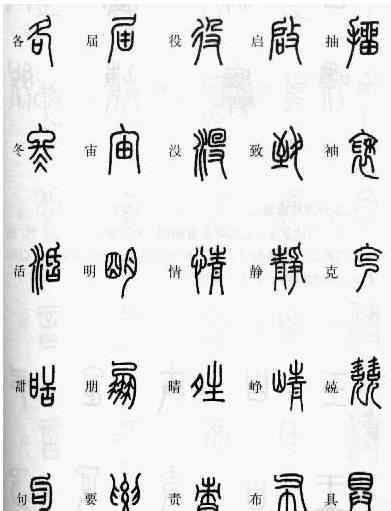 各 届 役 启 抽
冬 宙 没 致 袖
活 明 情 静 克
甜 朋 晴 峥 兢
句 要 责 布 具